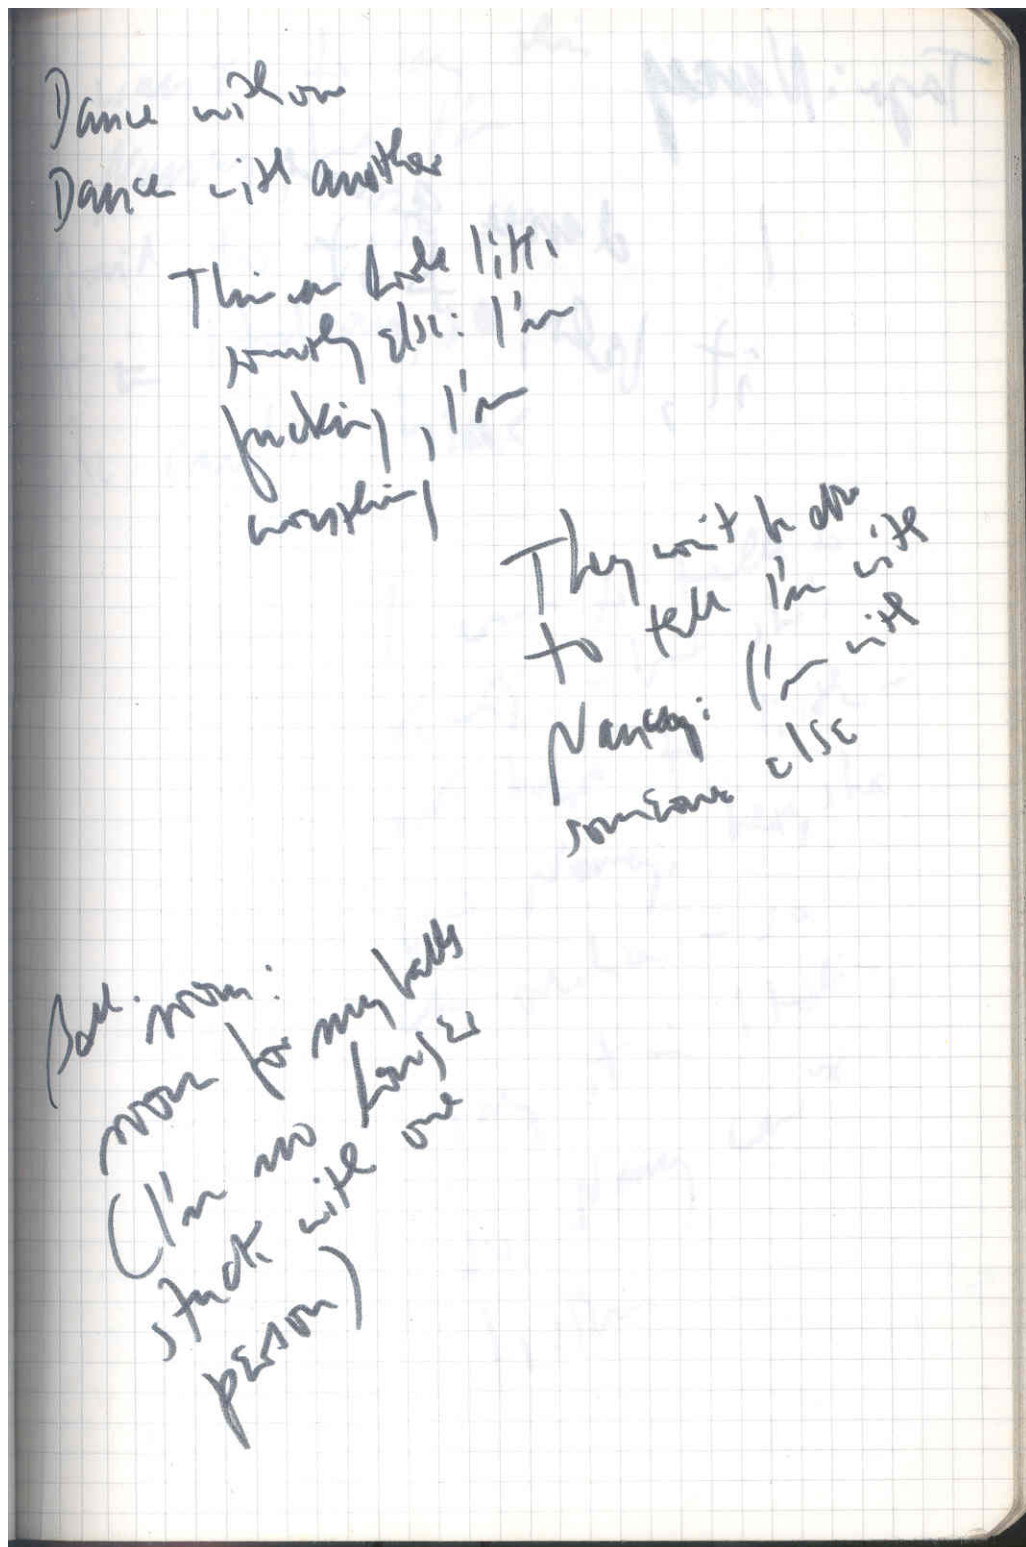 Dance with one
Dance with another
This one looks like
somebody else: I'm
fucking, I'm
worshipping
They won't be able
to tell I'm with
Nancy: I'm with
someone else
Ball-room:
room for my balls
(I'm no longer
stuck with one
person)